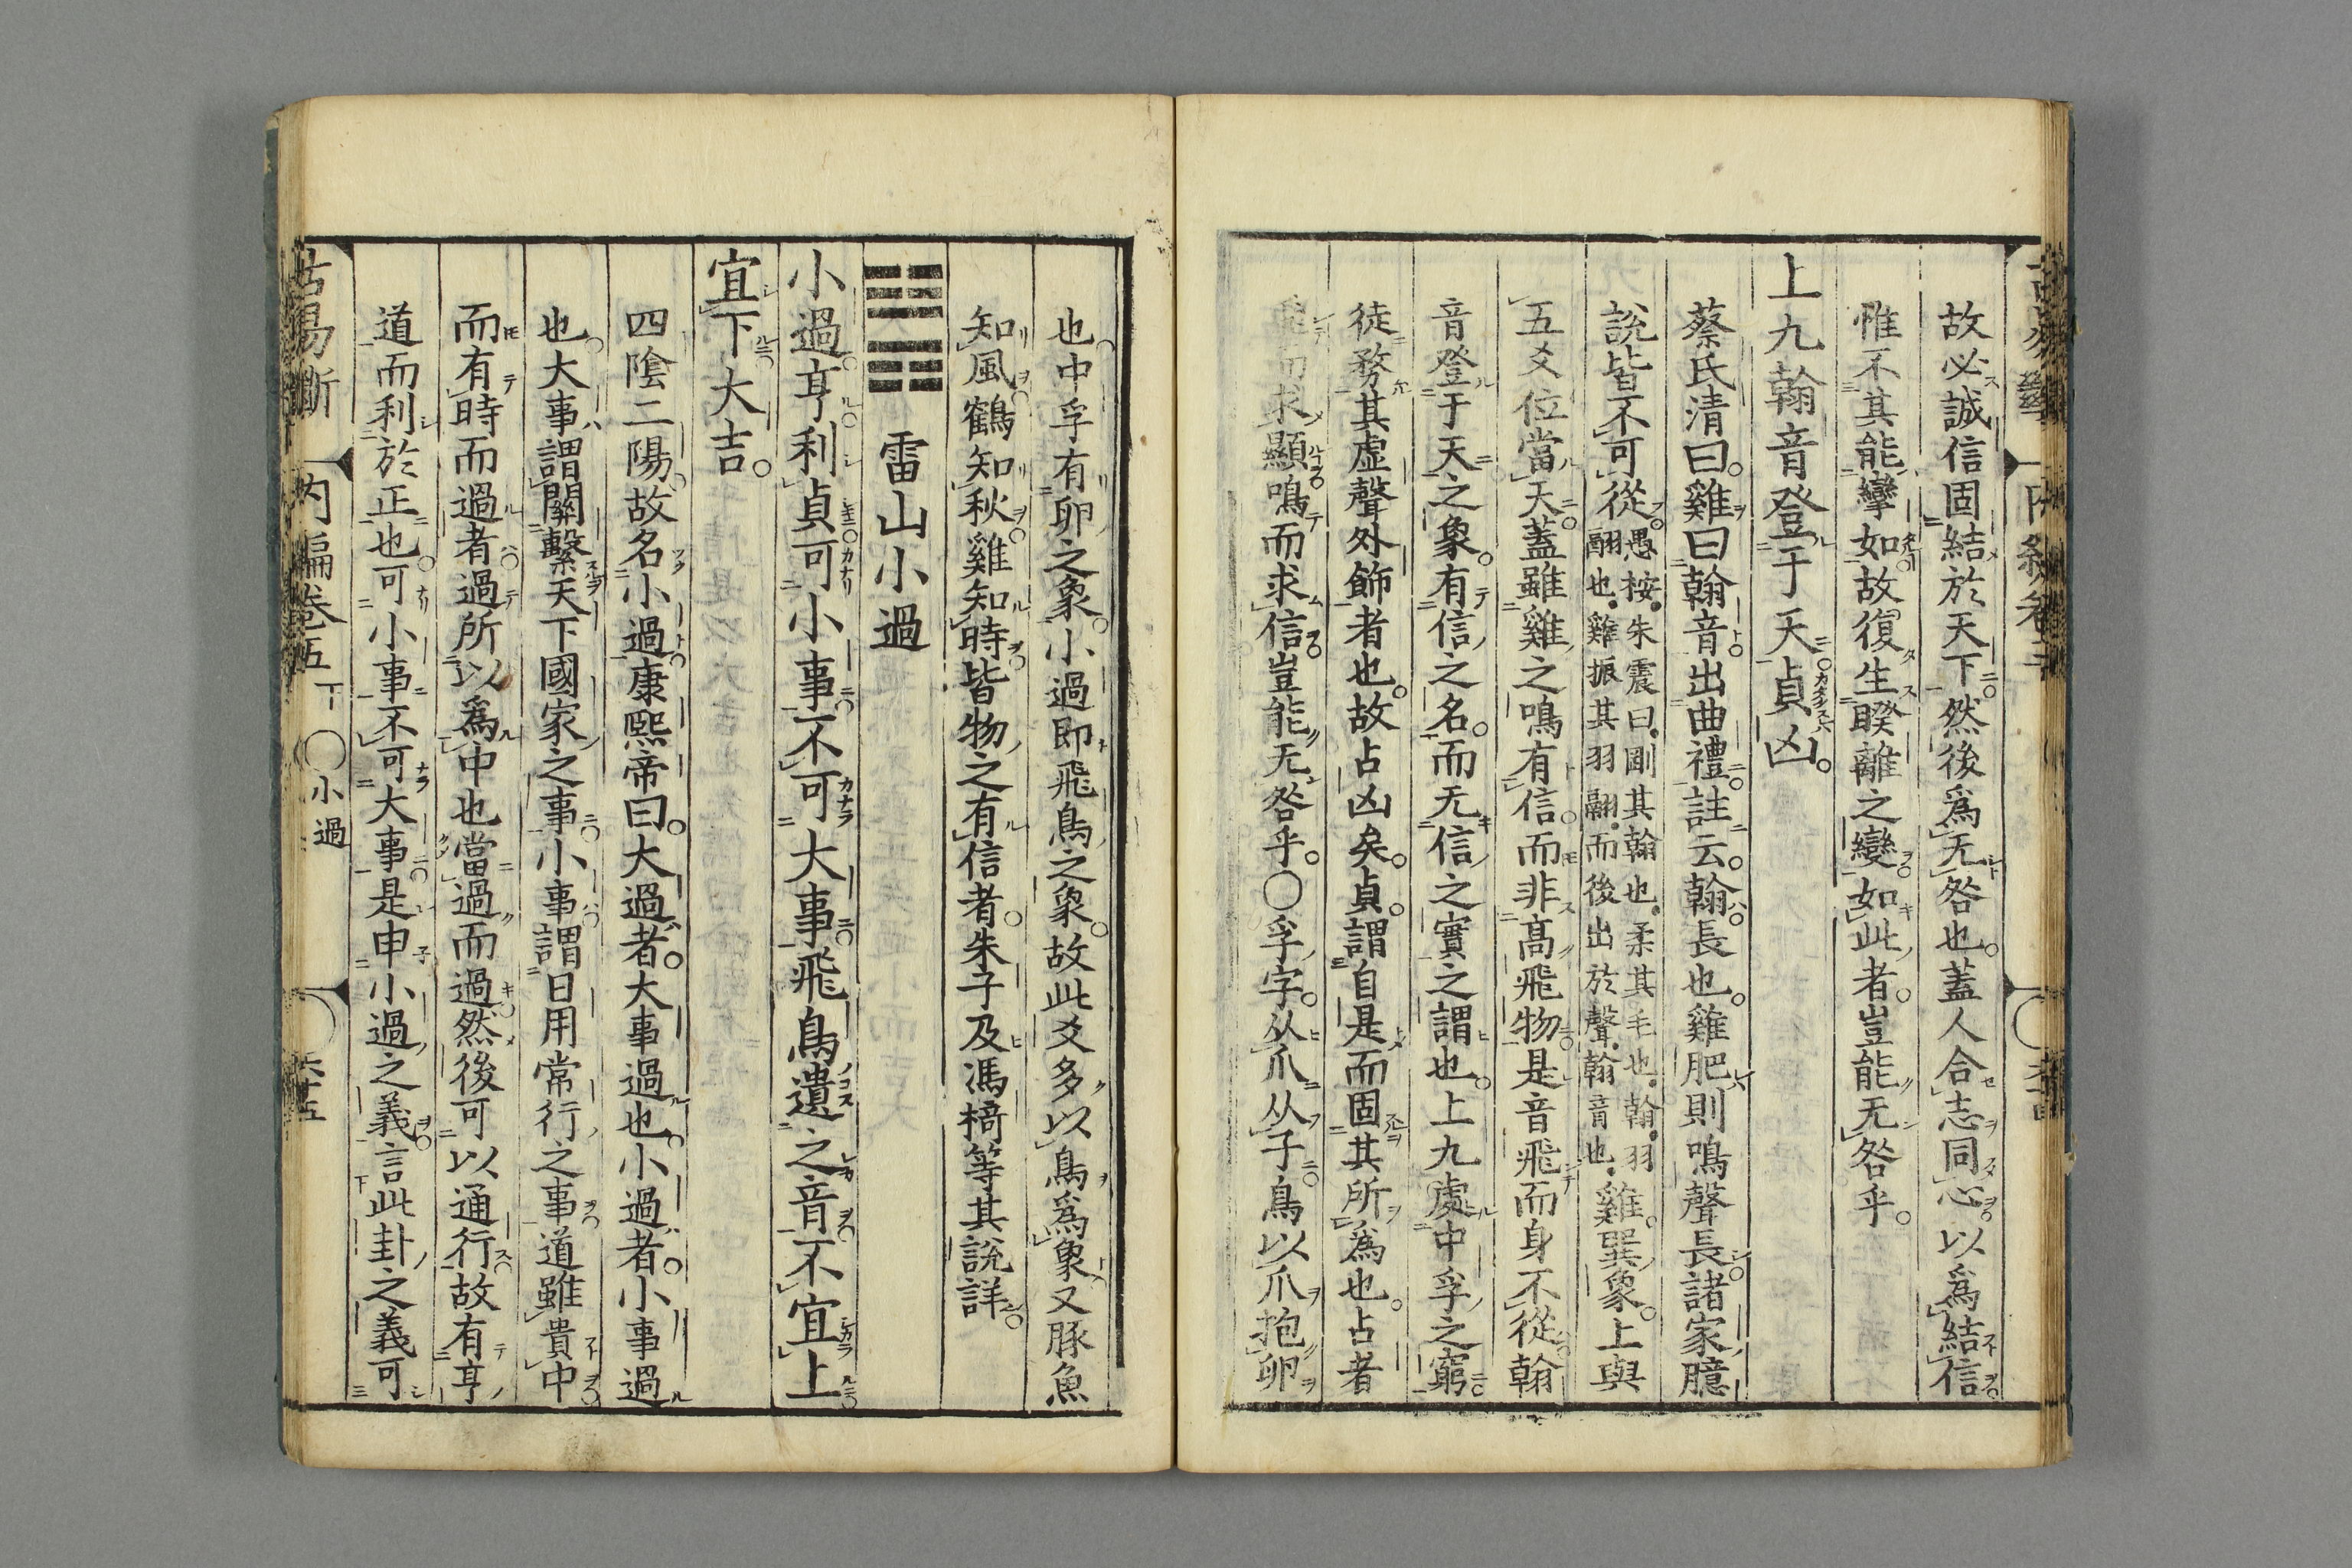 故必誠信固結於天下然後爲无咎也蓋人合志同心以爲結信
惟不其能攣如故復生睽離之變如此者豈能无咎乎
上九翰音登于天貞凶
蔡氏清曰雞曰翰音出曲禮註云翰長也雞肥則鳴聲長諸家臆
說皆不可從愚按朱震曰剛其翰也柔其毛也翰羽
翮也雞振其羽翮而後出於聲翰音也雞巽象上與
五爻位當天蓋雖雞之鳴有信而非高飛物是音飛而身不從翰
音登于天之象有信之名而无信之實之謂也上九處中孚之窮
徒務其虛聲外飾者也故占凶矣貞謂自是而固其所爲也占者
而求顯鳴而求信豈能无咎乎〇孚字从爪从子鳥以爪抱卵
也中孚有卵之象小過即飛鳥之象故此爻多以鳥爲象又豚魚
知風鶴知秋雞知時皆物之有信者朱子及馮椅等其說詳
䷽雷山小過
小過亨利貞可小事不可大事飛鳥遺之音不宜上
宜下大吉
四陰二陽故名小過康熙帝曰大過者大事過也小過者小事過
也大事謂關繫天下國家之事小事謂日用常行之事道雖貴中
而有時而過者過所以爲中也當過而過然後可以通行故有亨
道而利於正也可小事不可大事是申小過之義言此卦之義可
古易斷 內編卷五下 〇小過 六十五